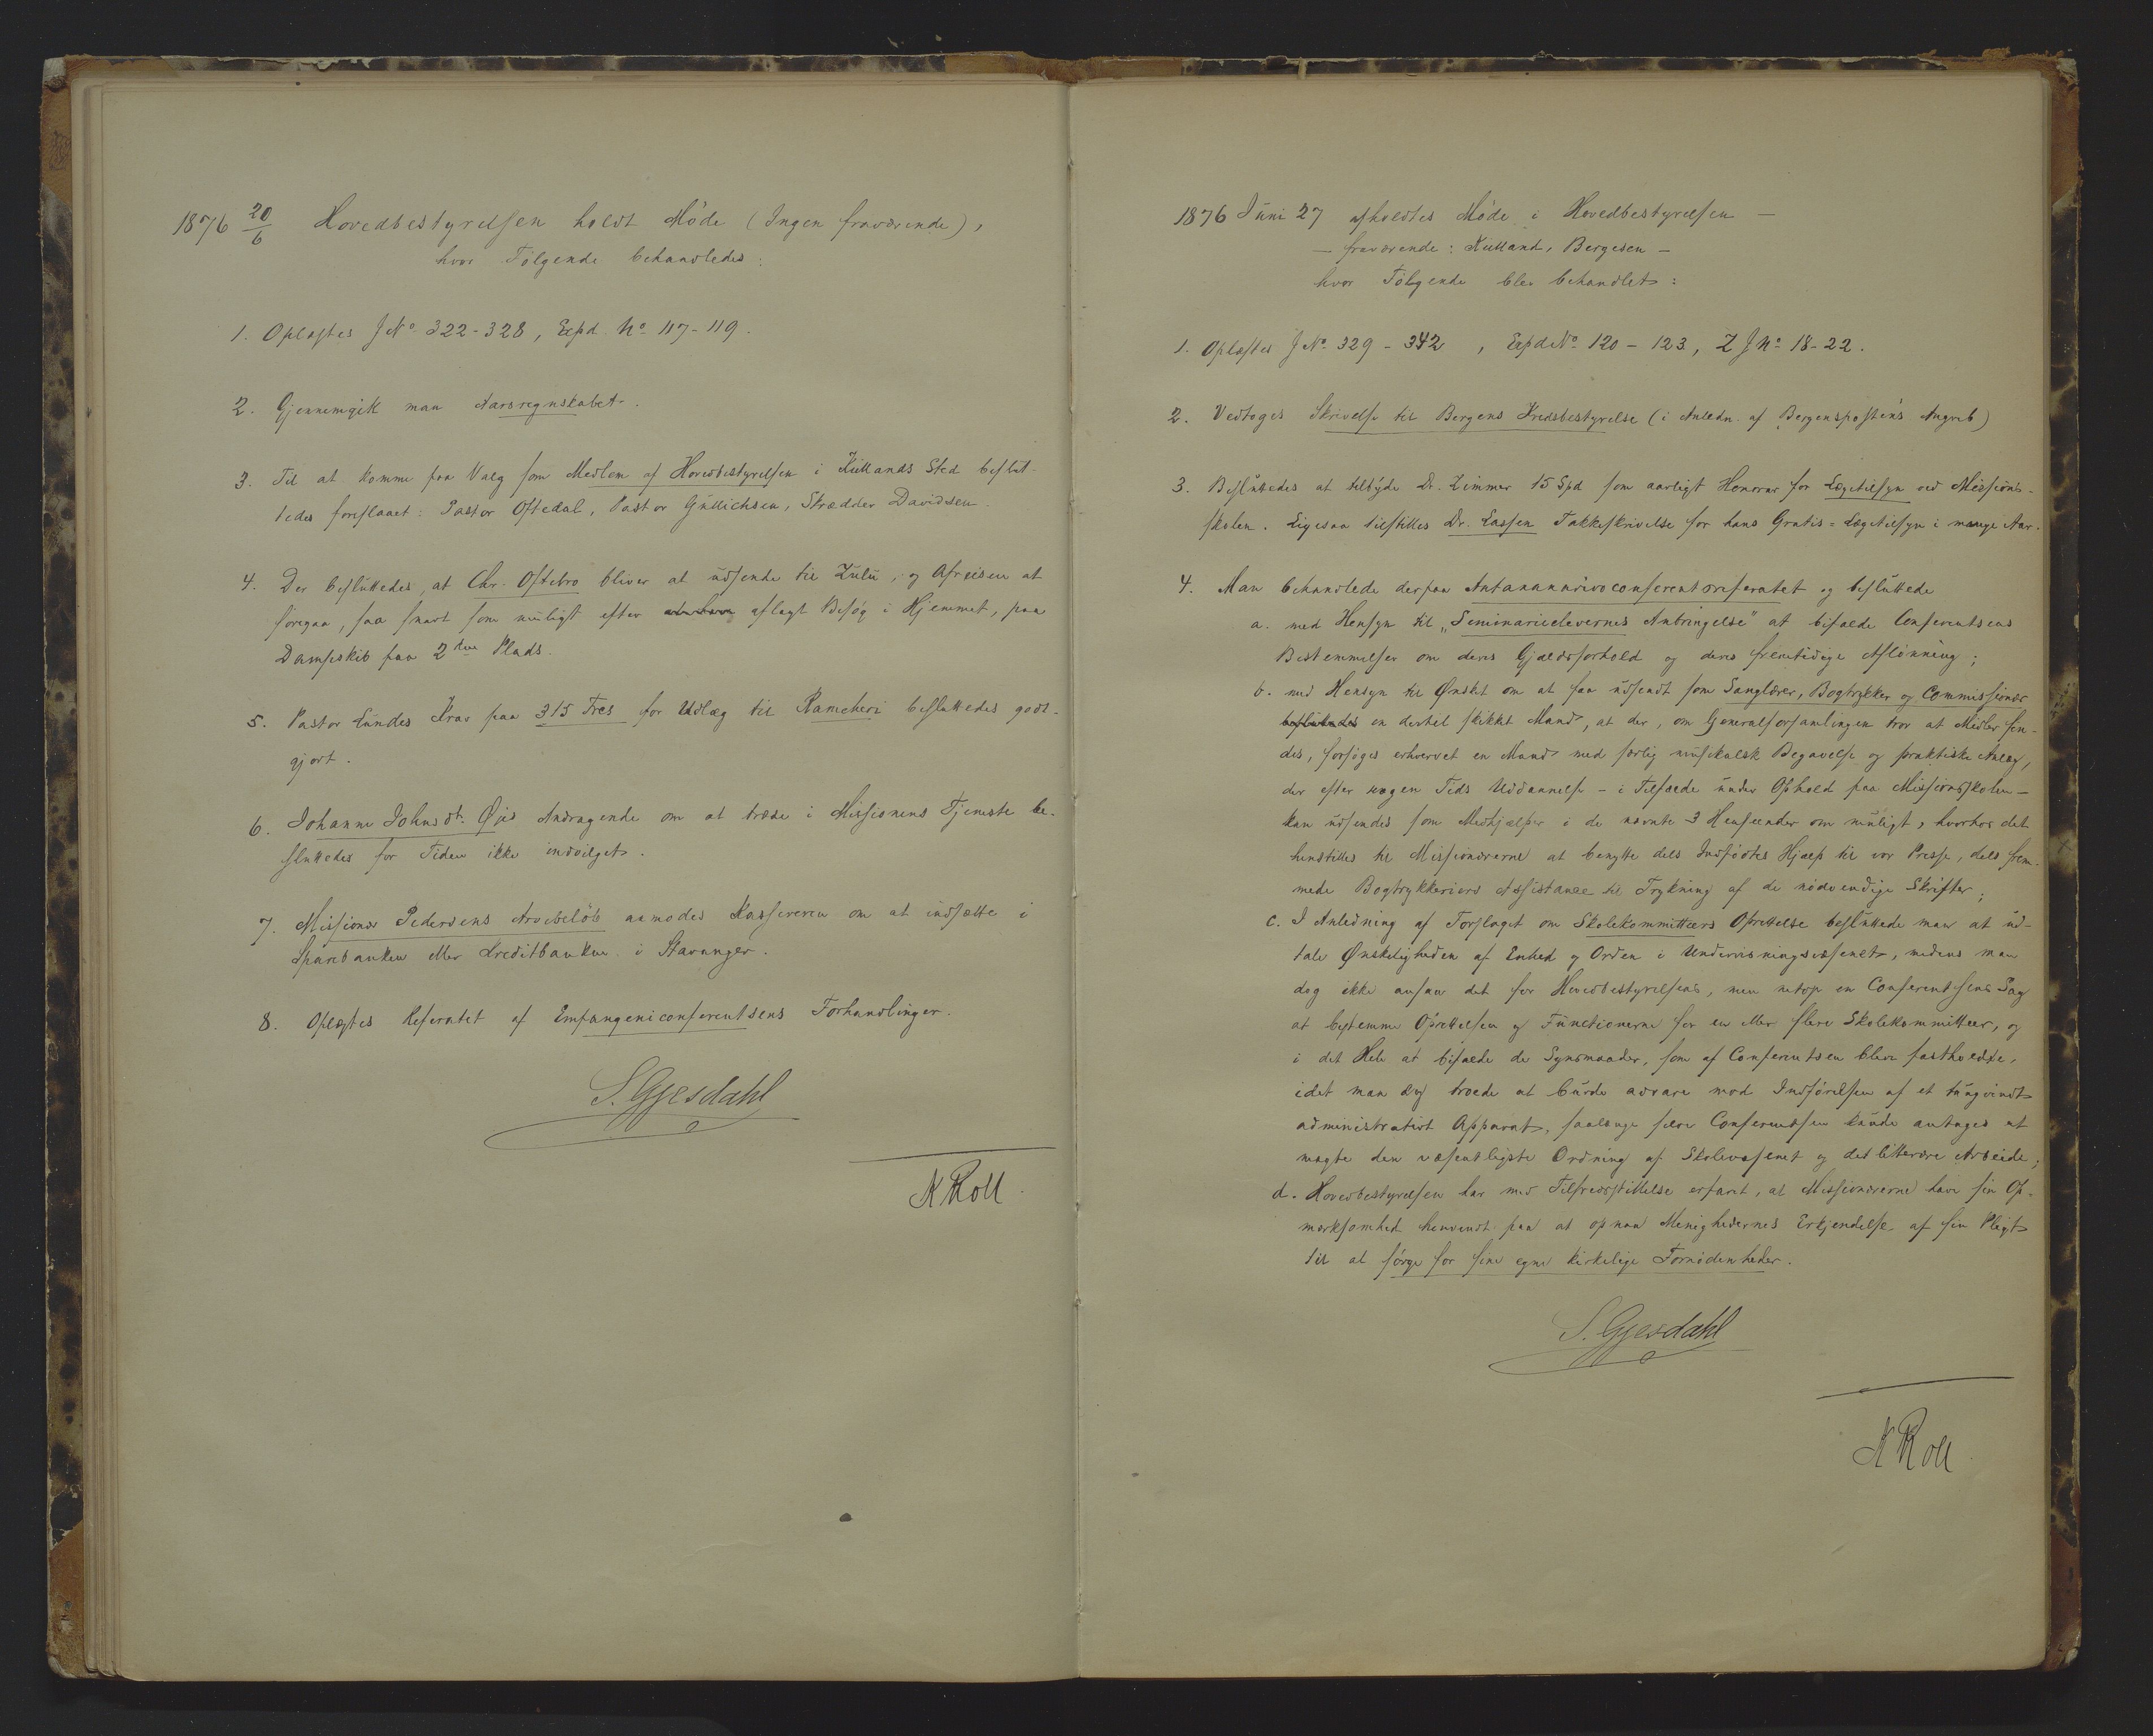 1876 20/6 Hovedbestyrelsen holdt Møde (Ingen fraværende),
hvor Følgende behandledes:
1. Oplæstes J No 322-328, Expd. No 117-119.
2. Gjennemgik man Aarsregnskabet.
3. Til at komme paa Valg som Medlem af Hovedbestyrelsen i Kiellands Sted beslut-
tedes foreslaaet: Pastor Oftedal, Pastor Gullichsen, Skrædder Davidsen.
4. Der besluttedes, at Chr. Oftebro bliver at udsende til Zulu, og Afreisen at
foregaa, saa snart som muligt efter at have aflagt Besøg i Hjemmet, paa
Dampskib paa 2den Plads.
5. Pastor Lundes Krav paa 315 Frcs for Udlæg til Rameheri besluttedes godt-
gjort.
6. Johanne Johnsdt. Øies Andragende om at træde i Missionens Tjeneste be-
sluttedes for Tiden ikke indvilget.
7. Missionær Pedersens Arvebeløb anmodes Kassereren om at indsætte i
Sparebanken eller Kreditbanken i Stavanger.
8. Oplæstes Referatet af Empangeniconferentsens Forhandlinger.
S. Gjesdahl
K Roll
1876 Juni 27 afholdtes Møde i Hovedbestyrelsen —
— fraværende: Kielland, Bergesen —
hvor Følgende blev behandlet:
1. Oplæstes J No. 329 - 342, Expd No 120 - 123, Z J No 18-22.
2. Vedtoges Skrivelse til Bergens Kredsbestyrelse (i Anledn. af Bergenspostens Angreb)
3. Besluttedes at tilbyde Dr. Zimmer 15 Spd som aarligt Honorar for Lægetilsyn ved Missions-
skolen. Ligesaa tilstilles Dr. Lassen Takkeskrivelse for hans Gratis-Lægetilsyn i mange Aar.
4. Man behandlede derpaa Antananarivoconferentsreferatet og besluttede
a. med Hensyn til „Seminarieelevernes Anbringelse" at bifalde Conferentsens
Bestemmelser om deres Gjældsforhold og deres fremtidige Aflønning;
b. med Hensyn til Ønsket om at faa udsendt som Sanglærer, Bogtrykker og Commissionær
besluttedes en dertil skikket Mand, at der, om Generalforsamlingen tror at Midler fin-
des, forsøges erhvervet en Mand med særlig musikalsk Begavelse og praktiske Anlæg,
der efter nogen Tids Uddannelse - i Tilfælde under Ophold paa Missionsskolen -
kan udsendes som Medhjælper i de nævnte 3 Henseender om muligt, hvorhos det
henstilles til Missionærerne at benytte dels Indfødtes Hjælp til vor Presse, dels frem-
mede Bogtrykkeriers Assistance til Trykning af de nødvendige Skrifter;
c. I Anledning af Forslaget om Skolekommitteers Oprettelse besluttede man at ud-
tale Ønskeligheden af Enhed og Orden i Undervisningsvæsenet, medens man
dog ikke ansaa det for Hovedbestyrelsens, men netop en Conferentsens Sag
at bestemme Oprettelsen og Functionerne for en eller flere Skolekommitteer, og
i det Hele at bifalde de Synsmaader, som af Conferentsen bleve fastholdte,
idet man dog troede at burde advare mod Indførelsen af et tungvindt
administrativt Apparat, saalænge selve Conferentsen kunde antages at
magte den væsentligste Ordning af Skolevæsenet og det litterære Arbeide;
d. Hovedbestyrelsen har med Tilfredsstillelse erfaret, at Missionærerne have sin Op-
mærksomhed henvendt paa at opnaa Menighedernes Erkjendelse af sin Pligt
til at sørge for sine egne kirkelige Fornødenheder.
S. Gjesdahl
K Roll